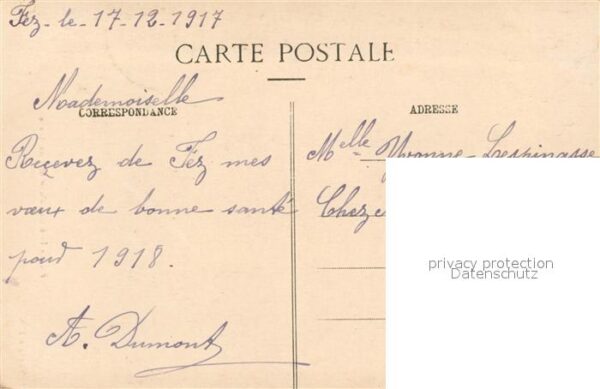 Fez - le - 17-12-1917
CARTE POSTALE
Mademoiselle
CORRESPONDANCE
Reçevez de Fez mes
vœux de bonne santé
pour 1918.
A. Dumont
ADRESSE
Melle Yvonne Lespinasse
Chez
privacy protection
Datenschutz